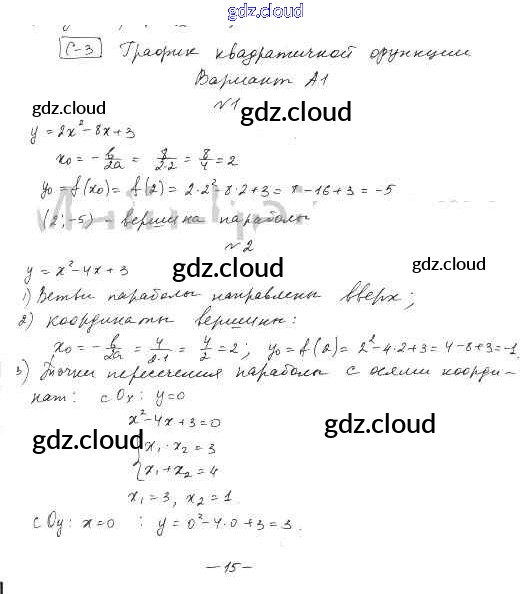 gdz.cloud
С-3 График квадратичной функции
Вариант А1
№1
gdz.cloud
gdz.cloud
y = 2x² - 8x + 3
x₀ = -b/2a = 8/2·2 = 8/4 = 2
y₀ = f(x₀) = f(2) = 2·2² - 8·2 + 3 = 8 - 16 + 3 = -5
(2; -5) - вершина параболы
№2
gdz.cloud
gdz.cloud
y = x² - 4x + 3
1) Ветви параболы направлены вверх;
2) координаты вершины:
x₀ = -b/2a = 4/2·1 = 4/2 = 2; y₀ = f(2) = 2² - 4·2 + 3 = 4 - 8 + 3 = -1
3) Точки пересечения параболы с осями коорди-
нат: с Ox: y = 0
x² - 4x + 3 = 0
gdz.cloud
gdz.cloud
{ x₁ · x₂ = 3
x₁ + x₂ = 4
x₁ = 3, x₂ = 1.
с Oy: x = 0 : y = 0² - 4·0 + 3 = 3.
- 15 -